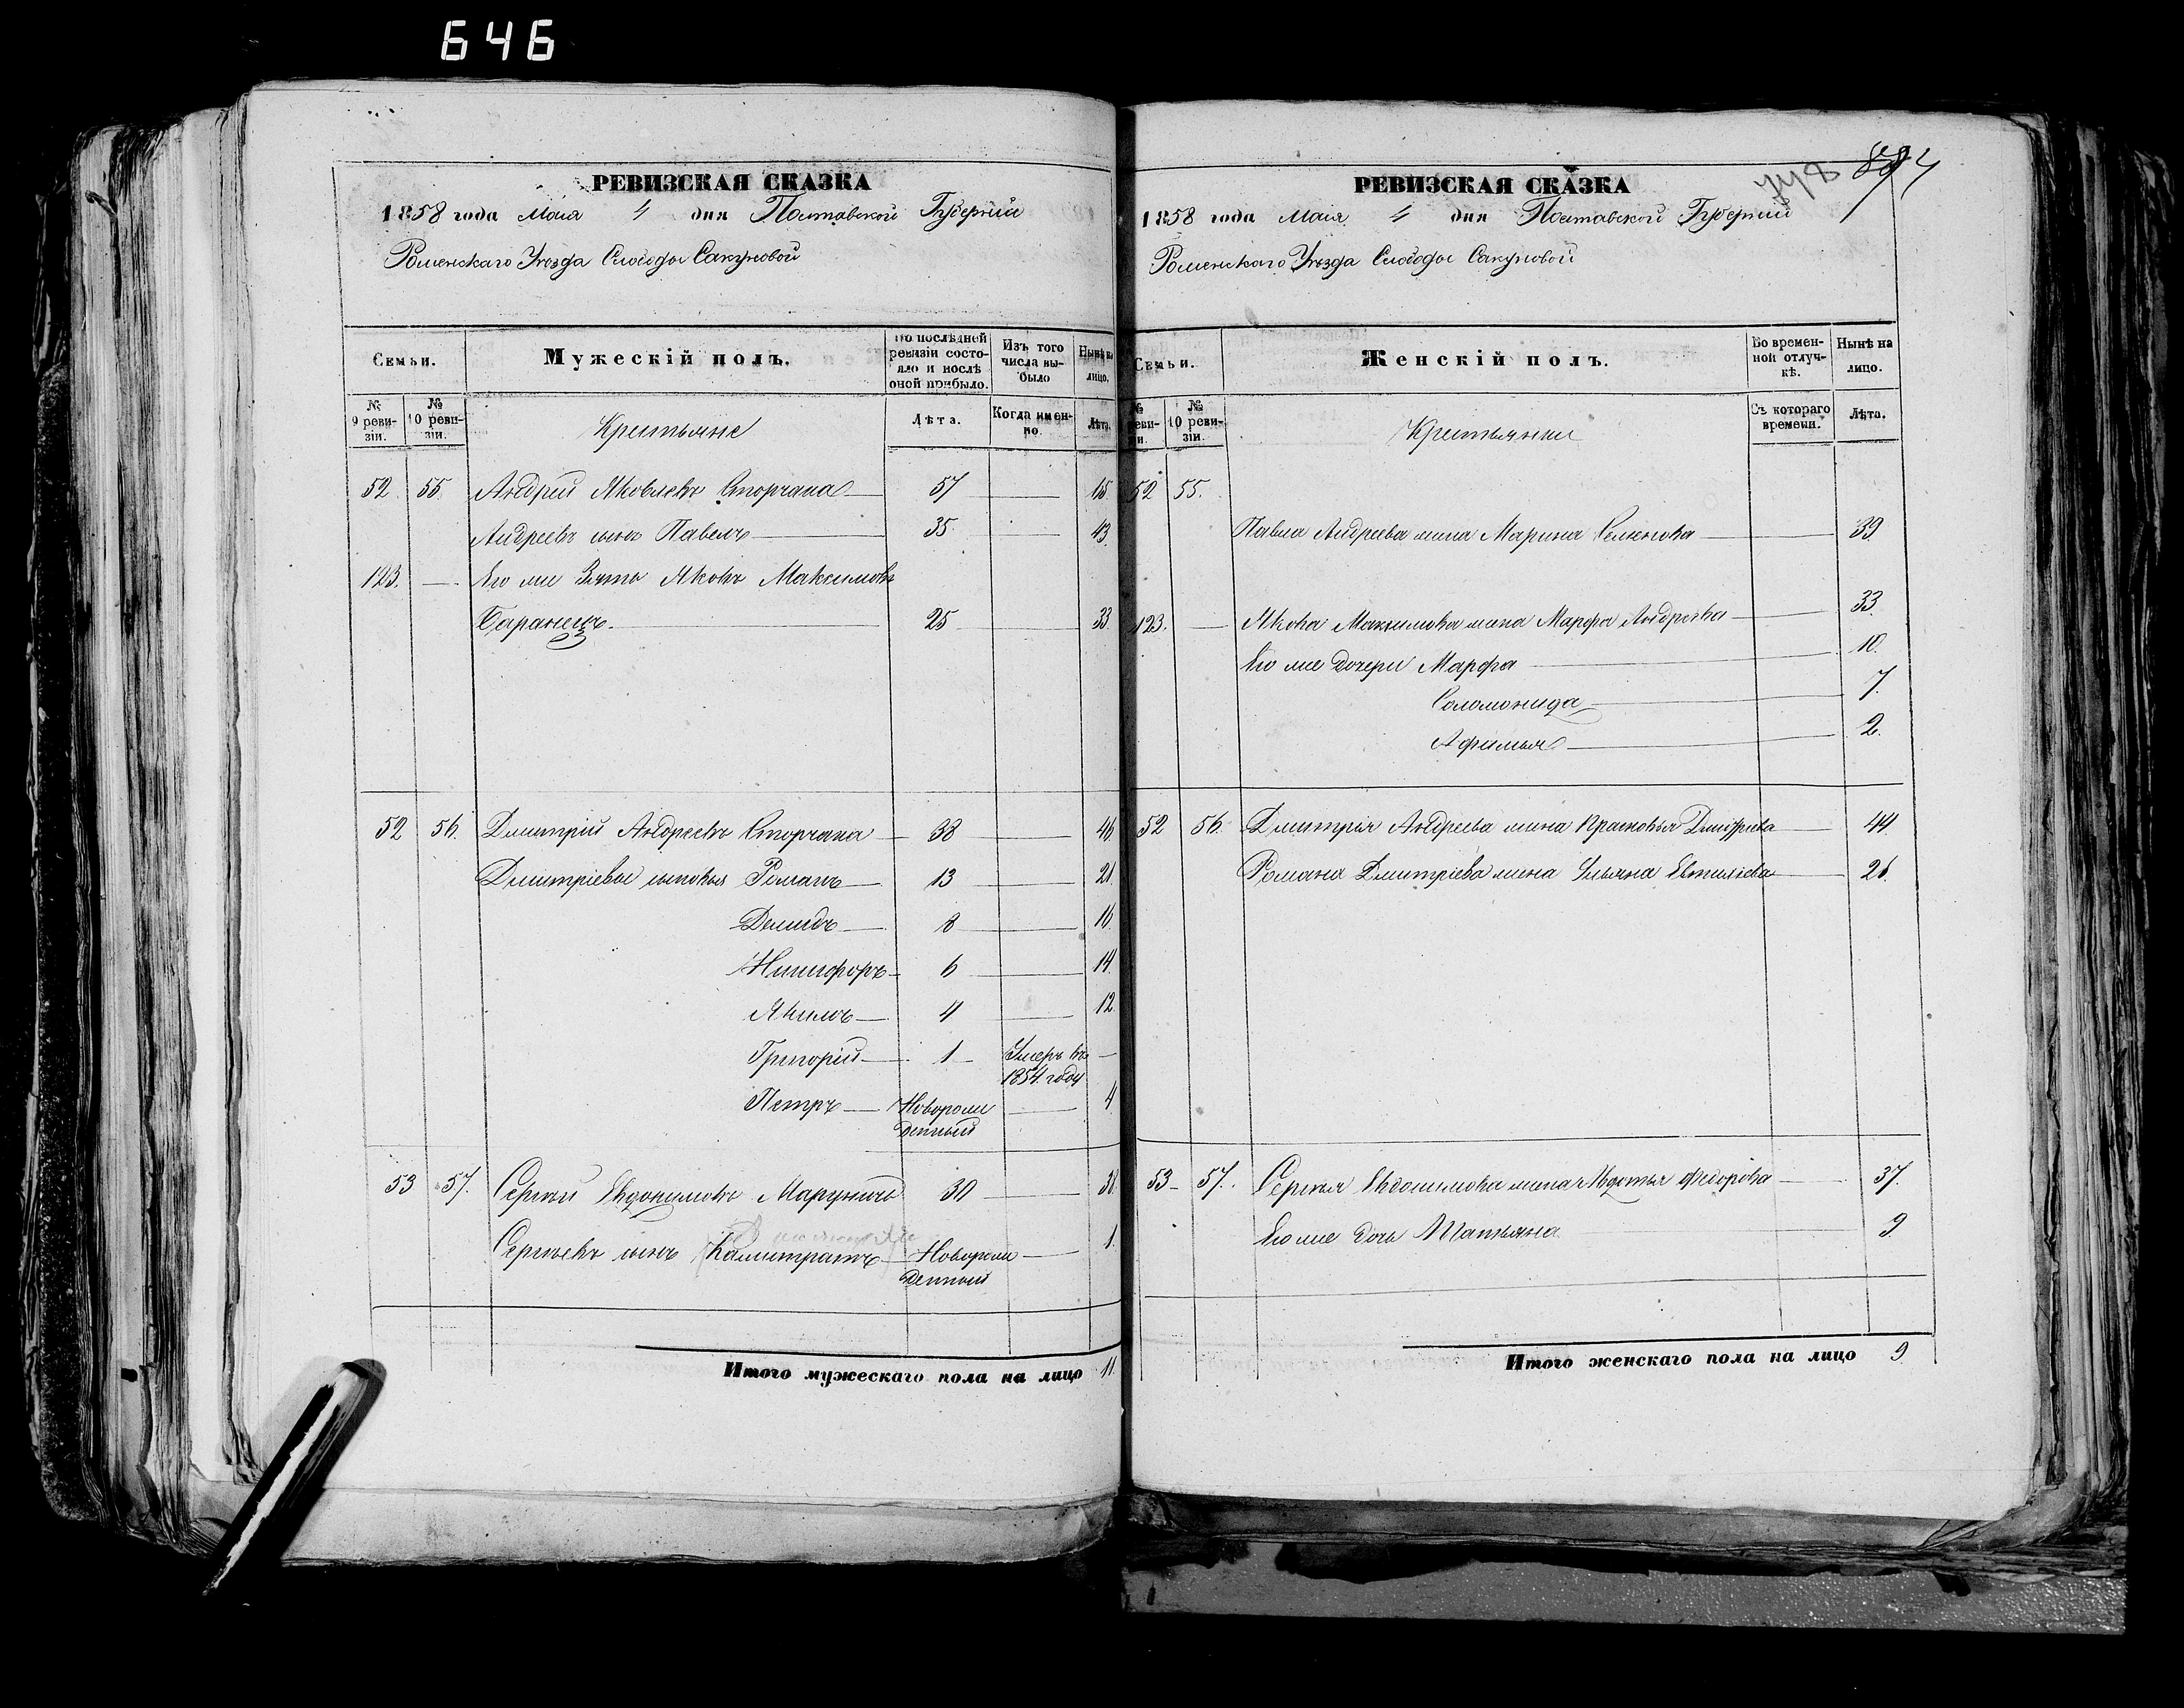 646
РЕВИЗСКАЯ СКАЗКА
1858 года Маія 4 дня Полтавской Губерніи
Роменскаго Уѣзда Слободы Сакуновой
Семьи.
Мужескій полъ.
По послѣдней ревизіи состояло и послѣ оной прибыло.
Изъ того числа выбыло
Нынѣ на лицо.
№ 9 ревизіи.
№ 10 ревизіи.
Крестьяне
Лѣта.
Когда именно.
Лѣта.
52. 55. Андрей Яковлевъ Сторчака 57 65.
Андреевъ сынъ Павелъ 35. 43.
123. Его же Зять Яковъ Максимовъ
Баранецъ. 25 33.
52 56. Дмитрій Андреевъ Сторчака 38 46.
Дмитріевы сыновья Романъ 13 21.
Демидъ 8 16.
Никифоръ 6 14.
Якимъ 4 12.
Григорій 1 Умеръ въ
1854. году
Петръ Новорож 4
денный
53 57. Сергѣй Евдокимовъ Маруничъ 30 38.
Сергѣевъ сынъ Калистратъ Новорож 1.
денный
Итого мужескаго пола на лицо 11.
884
РЕВИЗСКАЯ СКАЗКА
1858 года Маія 4 дня Полтавской Губерніи
Роменскаго Уѣзда Слободы Сакуновой
Семьи.
Женскій полъ.
Во временной отлучкѣ.
Нынѣ на лицо.
№ 9 ревизіи.
№ 10 ревизіи.
Крестьянки
Съ котораго времени.
Лѣта.
52 55.
Павла Андреева жена Марина Семенова 39.
123. Якова Максимова жена Марфа Андреева 33.
Его же дочери Марфа 10.
Соломонида 7.
Афимья 2.
52 56. Дмитрія Андреева жена Прасковья Дмитріева 44.
Романа Дмитріева жена Ульяна 21.
53 57. Сергѣя Евдокимова жена Авдотья Федорова 37.
Его же дочь Татьяна 9
Итого женскаго пола на лицо 9